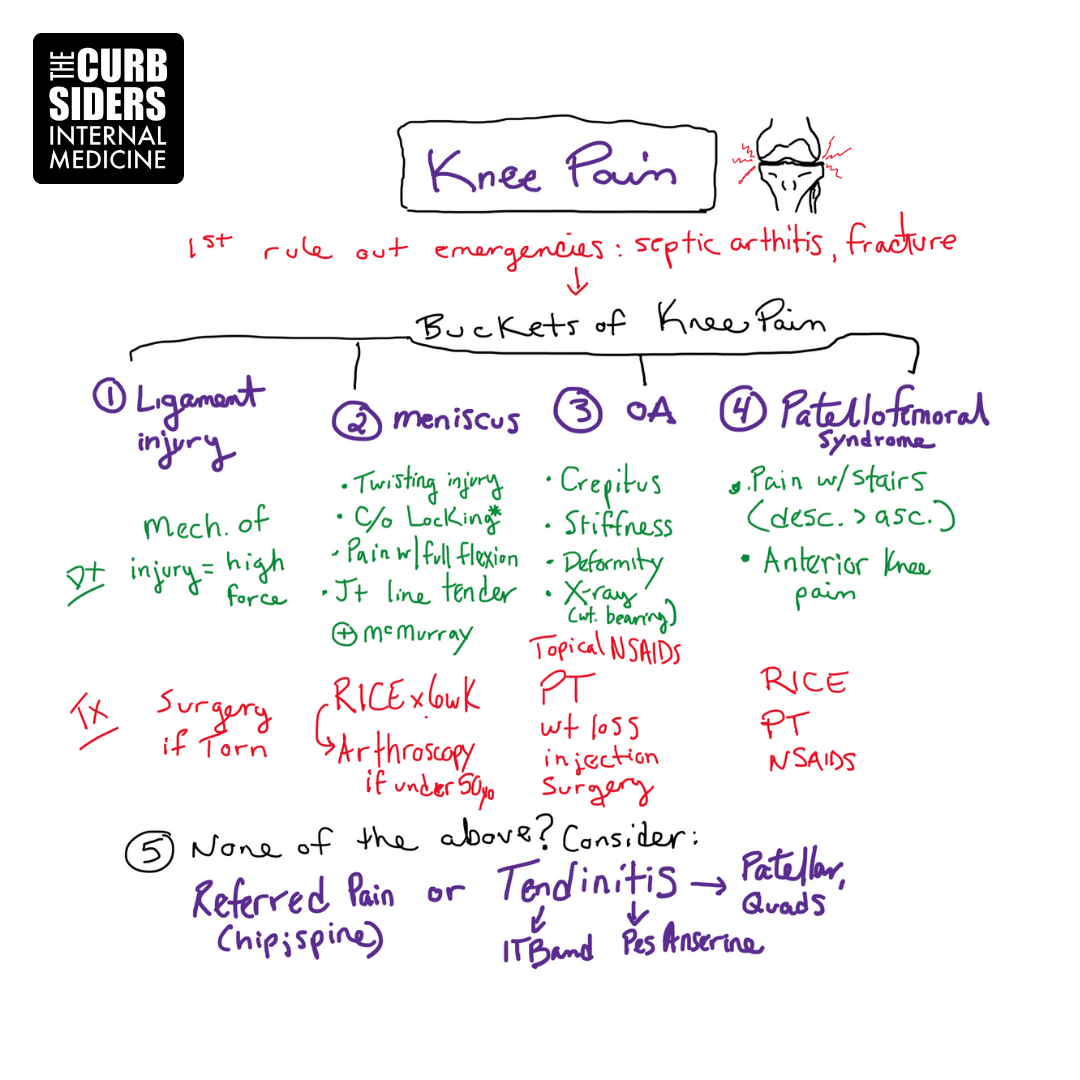 THE CURB
SIDERS
INTERNAL
MEDICINE
Knee Pain
1st rule out emergencies: septic arthitis, fracture
Buckets of Knee Pain
① Ligament
injury
② meniscus
③ OA
④ Patellofemoral
Syndrome
Dx
Mech. of
injury = high
force
• Twisting injury
• C/o Locking*
• Pain w/ full flexion
• Jt line tender
⊕ McMurray
• Crepitus
• Stiffness
• Deformity
• X-ray
(wt. bearing)
• Pain w/ stairs
(desc. > asc.)
• Anterior Knee
pain
Tx
Surgery
if Torn
RICE x 6wk
↳ Arthroscopy
if under 50yo
Topical NSAIDS
PT
wt loss
injection
Surgery
RICE
PT
NSAIDS
⑤ None of the above? Consider:
Referred Pain or Tendinitis → Patellar,
Quads
(hip; spine)
ITBand
Pes Anserine